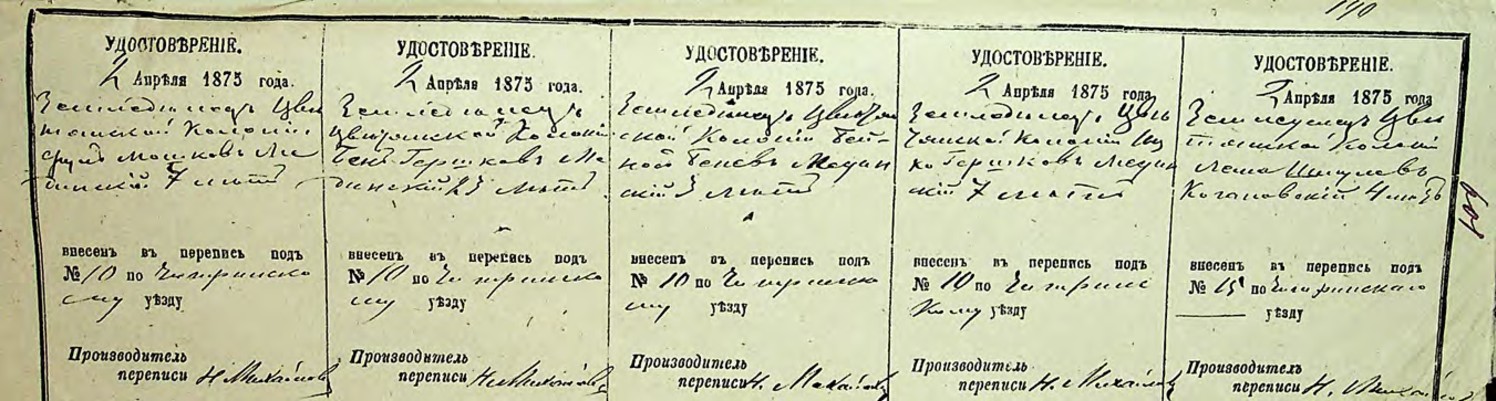 140
УДОСТОВѢРЕНІЕ.
2 Апрѣля 1875 года.
Земледѣлецъ Цви
тянской Колоніи
Мошковъ Ме
динскій 7 лѣтъ
внесенъ въ перепись подъ
№ 10 по Чигринско
му уѣзду
Производитель
переписи Н. Михайловъ
УДОСТОВѢРЕНІЕ.
2 Апрѣля 1875 года.
Земледѣлецъ
Цвитянской Колоніи
Бенъ Гершковъ Ме
динскій 23 лѣтъ
внесенъ въ перепись подъ
№ 10 по Чигринско
му уѣзду
Производитель
переписи Н. Михайловъ
УДОСТОВѢРЕНІЕ.
2 Апрѣля 1875 года.
Земледѣлецъ Цвитян
ской Колоніи Бей
Беневъ Медин
скій 3 лѣтъ
внесенъ въ перепись подъ
№ 10 по Чигринско
му уѣзду
Производитель
переписи Н. Михайловъ
УДОСТОВѢРЕНІЕ.
2 Апрѣля 1875 года.
Земледѣлецъ Цви
тянской Колоніи Иц
ко Гершковъ Медин
скій 7 лѣтъ
внесенъ въ перепись подъ
№ 10 по Чигринс
кому уѣзду
Производитель
переписи Н. Михайловъ
УДОСТОВѢРЕНІЕ.
2 Апрѣля 1875 года
Земледѣлецъ Цви
тянской Колоніи
Шмулевъ
Когановскій 4 лѣтъ
внесенъ въ перепись подъ
№ 15 по Чигиринскаго
уѣзду
Производитель
переписи Н. Михайловъ